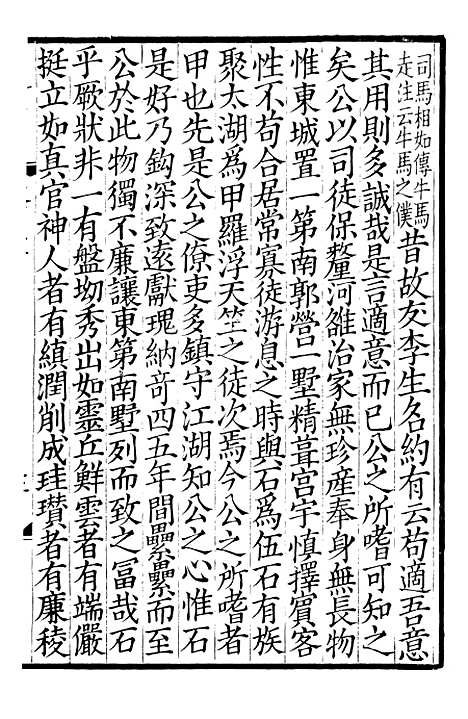 司馬相如傳牛馬
走注云牛馬之僕
昔故友李生名約有云苟適吾意
其用則多誠哉是言適意而已公之所嗜可知之
矣公以司徒保釐河雒治家無珍産奉身無長物
惟東城置一第南郭營一墅精葺宫宇慎擇賓客
性不苟合居常寡徒游息之時與石爲伍石有族
聚太湖爲甲羅浮天竺之徒次焉今公之所嗜者
甲也先是公之僚吏多鎮守江湖知公之心惟石
是好乃鈎深致遠獻瑰納奇四五年間纍纍而至
公於此物獨不廉讓東第南墅列而致之冨哉石
乎厥狀非一有盤坳秀出如靈丘鮮雲者有端儼
挺立如真官神人者有縝潤削成珪瓚者有廉稜